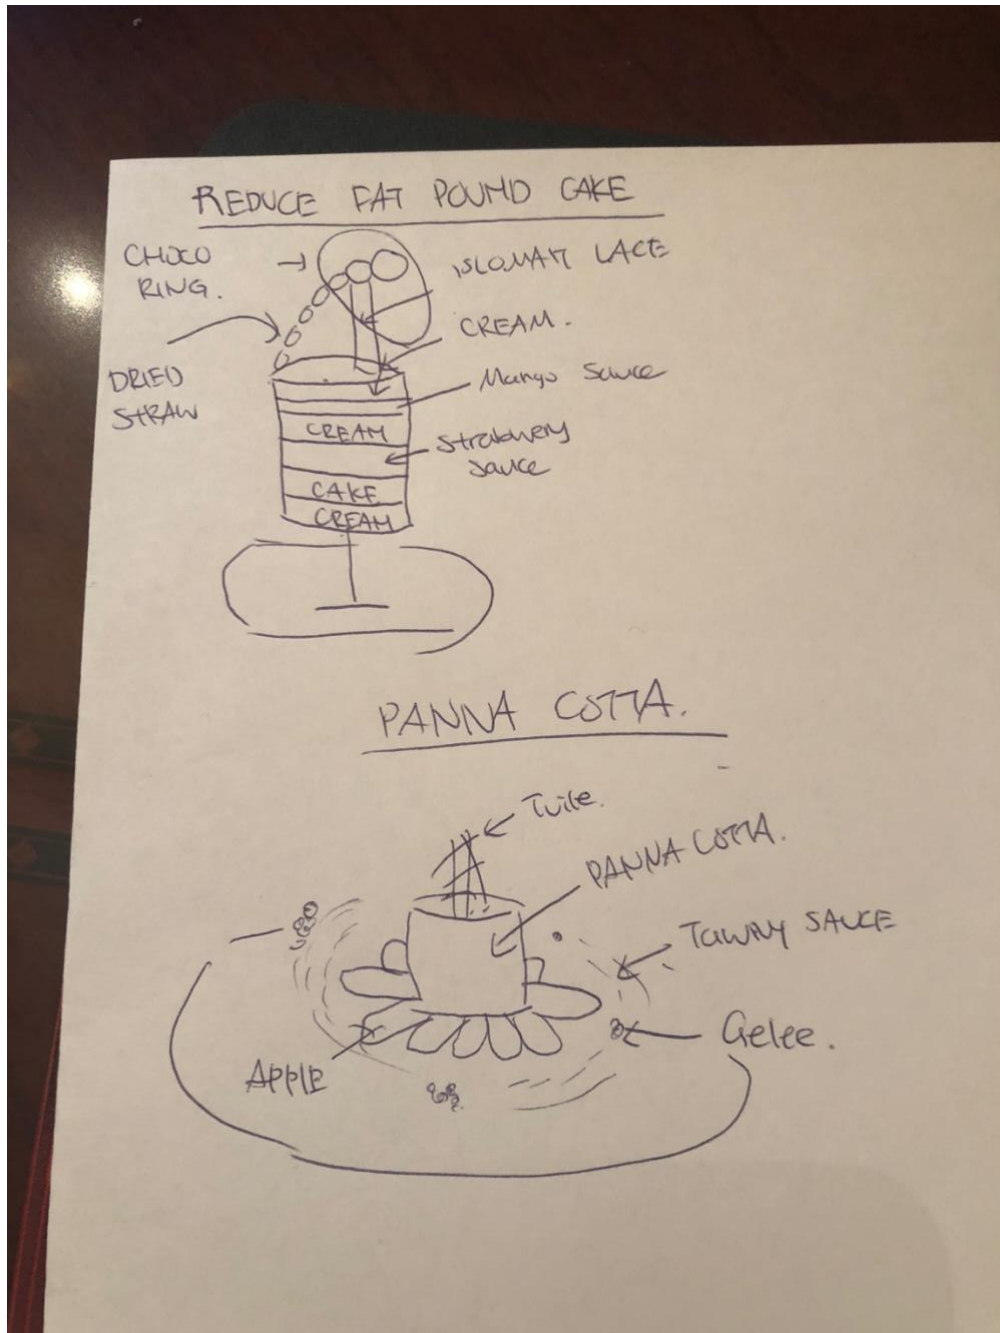 REDUCE FAT POUND CAKE
CHOCO
RING.
LACE
CREAM.
Mango Sauce
DRIED
STRAW
CREAM
sauce
CAKE
CREAM
PANNA COTTA.
Tuile.
PANNA COTTA.
TAWNY SAUCE
Gelee.
APPLE